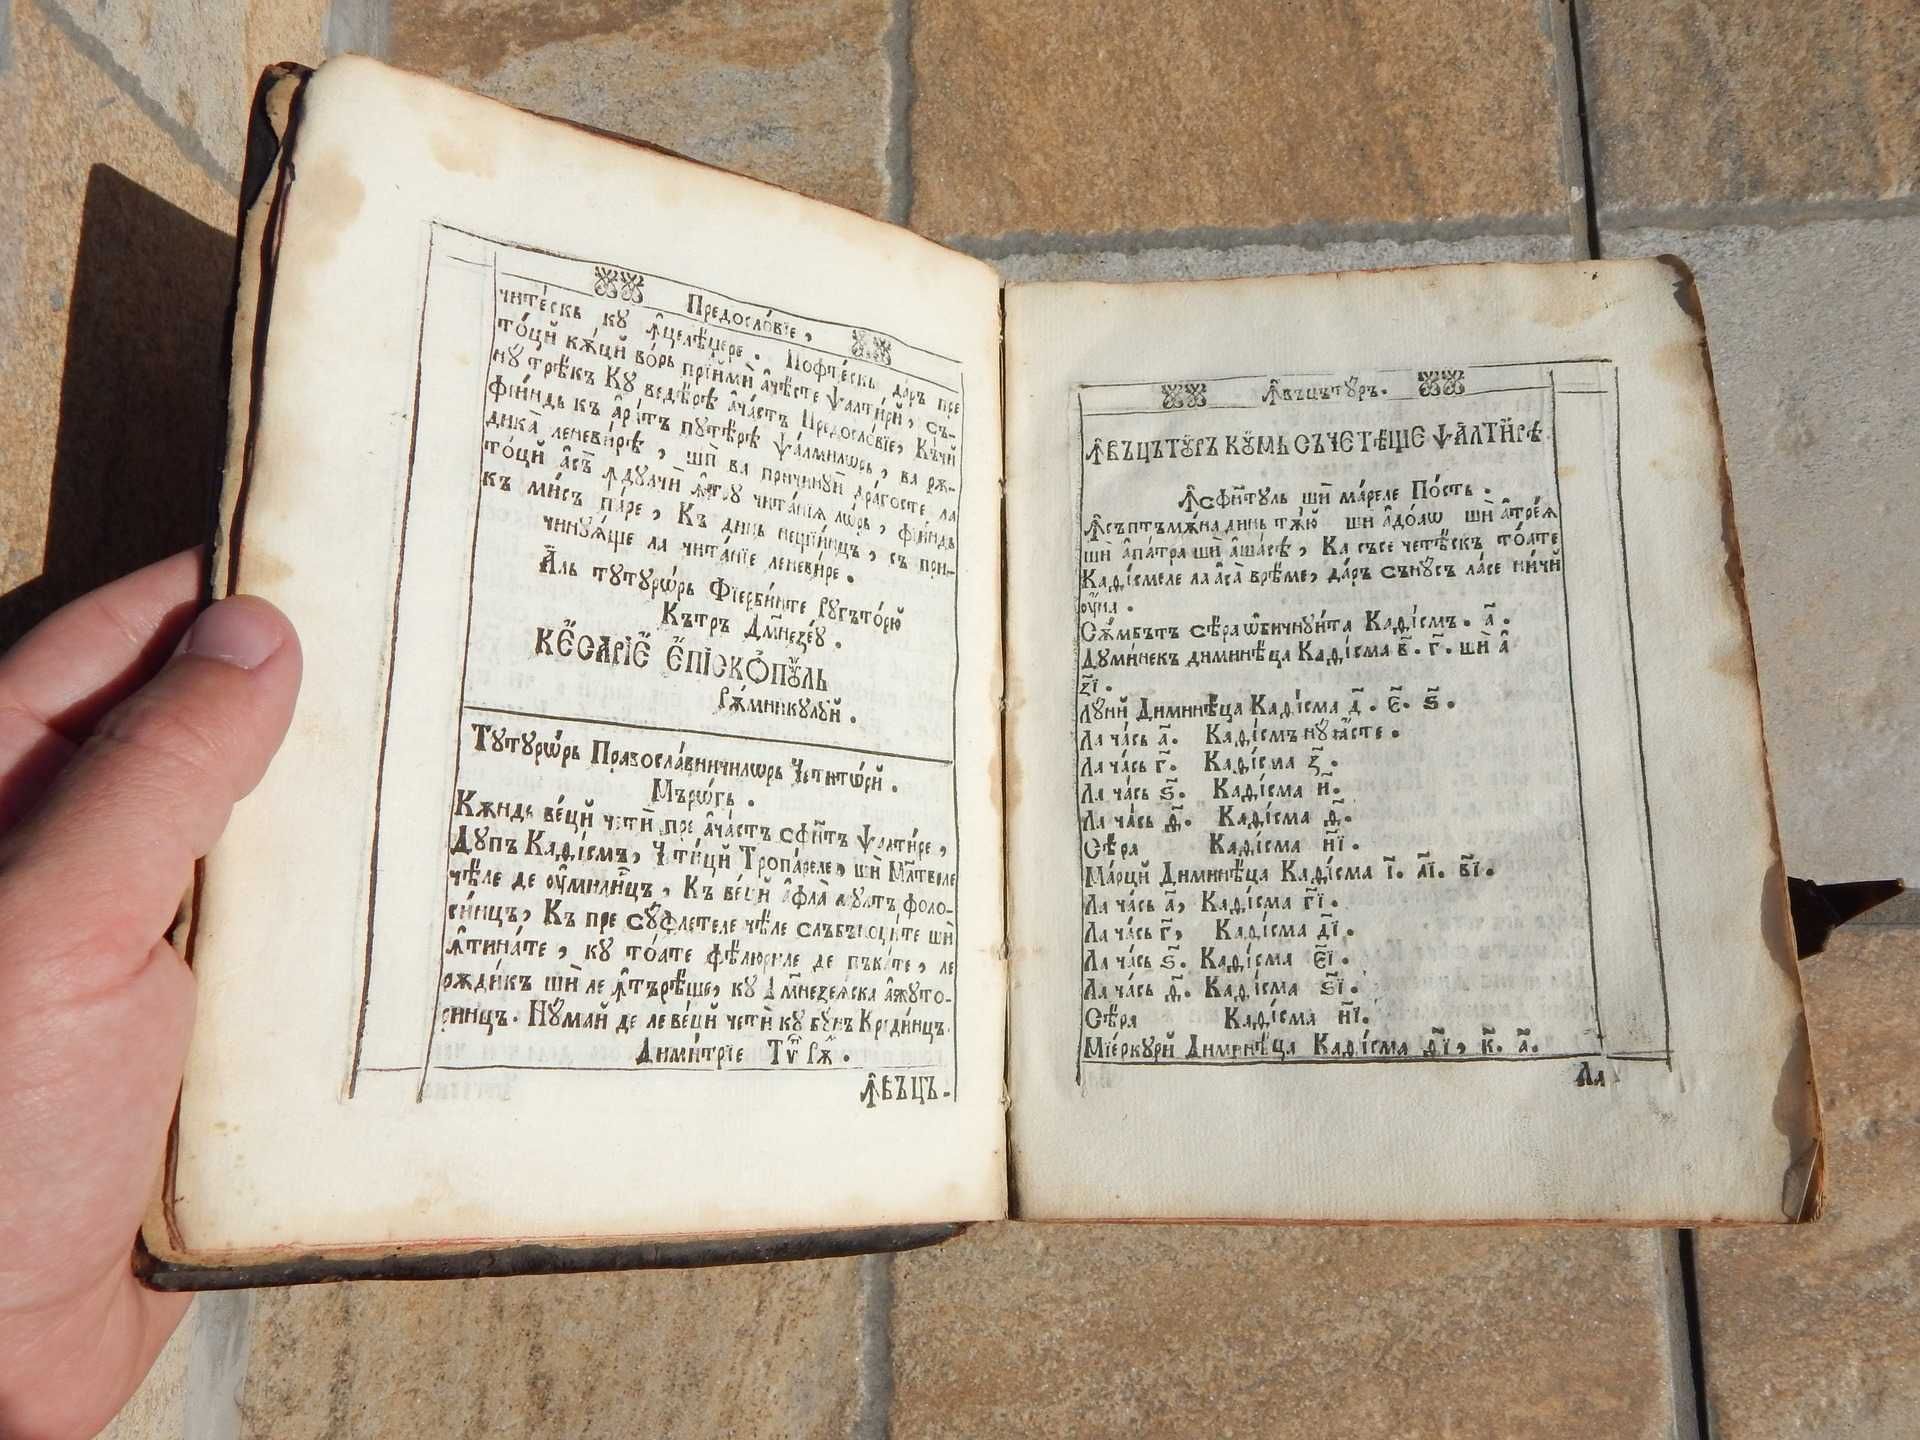 Предосло́вїе,
чите́скь кꙋ ꙟ҆целѣ́џере. Пофте́скь дарь пре
то́ци кѫ́ци во́рь прїи́ми а҆чѣ́сте Ѱалти́ри, съ-
нꙋ трѣ́къ Кꙋ ведѣ́рѣ а҆ча́стъ Предосло́вїе, Кѣчи
фїи́ндь къ а҆ра́тъ пꙋтѣ́рѣ ѱа́лмилѡрь, ва рѫ-
дика̀ леневи́рѣ, шѝ ва причинꙋѝ дра́госте ла
то́ци а҆съ̀ ꙟдꙋлчѝ ꙟ҆трꙋ чита́нїѧ лѡ́рь, фїи́ндь
къ ми́съ па́ре, Къ динь нещїи́нцъ, съ при-
чинꙋѧ́ще ла чита́нїе леневи́ре.
А҆ль тꙋтꙋрѡ́рь Фїерби́нте Рꙋгъто́рю
Кътръ Дм҃незе́ꙋ.
КЕСАРІЕ ЕПІСКОПꙊЛЬ
Рѫ́мникꙋлꙋй.
Тꙋтꙋрѡ́рь Правосла́вничилѡрь Четитѡ́ри.
Мърѡ́гь.
Кѫндь ве́ци четѝ пре а҆ча́стъ сфи҃тъ Ѱалти́ре,
Дꙋпъ Каѳі́смъ, Чети́ци Тропа́реле, шѝ Мл҃твеле
чѣ́ле де оу҆мили́нцъ, Къ ве́ци а҆фла̀ мꙋлтъ фоло-
си́нцъ, Къ пре сꙋ́флетеле чѣ́ле слъбъноци́те шѝ
ꙟ҆тина́те, кꙋ то́ате фѣ́люриле де пъка́те, ле
рѫди́къ шѝ ле ꙟ҆търѣ́ще, кꙋ Дм҃незеѧска а҆жꙋто-
ри́нцъ. Нꙋ́май де ле ве́ци четѝ кꙋ бꙋ́нъ Креди́нцъ.
Дими́трїе Тѵ҃ Рѫ҃.
Ꙟ҆вѣцъ-
Ꙟ҆въцътꙋ́ръ.
Ꙟ҆ВЪЦЪТꙊ́РЪ КꙊ́МЬ СЪ ЧЕТѢ́ЩЕ ѰАЛТИ́РѢ
Ꙟ҆ сфи҃тꙋль шѝ ма́реле По́сть.
Ꙟ҆ съптъмѫ́на динь тѫ́ю шѝ а҆до́лѡ шѝ а҆тре́ѧ
шѝ а҆па́тра шѝ а҆ша́сѣ, Ка съсе четѣ́скъ то́ате
Каѳі́смеле ла а҆са̀ врѣ́ме, да́рь сънꙋсъ ла́се ни́чи
оу҆́на.
Сѫ́мбътъ сѣ́ра ѡ҆бичнꙋи́та Каѳі́смъ. а҃.
Дꙋми́некъ диминѣ́ца Каѳі́сма в҃. г҃. шѝ а҆
з҃і.
Лꙋни Диминѣ́ца Каѳі́сма д҃. е҃. ѕ҃.
Ла ча́сь а҃. Каѳі́смъ нꙋ ꙗ҆́сте.
Ла ча́сь г҃. Каѳі́сма з҃.
Ла ча́сь ѕ҃. Каѳі́сма и҃.
Ла ча́сь ѳ҃. Каѳі́сма ѳ҃.
Сѣ́ра Каѳі́сма и҃і.
Ма́рци Диминѣ́ца Каѳі́сма і҃. а҃і. в҃і.
Ла ча́сь а҃, Каѳі́сма г҃і.
Ла ча́сь г҃, Каѳі́сма д҃і.
Ла ча́сь ѕ҃. Каѳі́сма е҃і.
Ла ча́сь ѳ҃. Каѳі́сма ѕ҃і.
Сѣ́ра Каѳі́сма и҃і.
Міе́ркꙋри Диминѣ́ца Каѳі́сма ѳ҃і, к҃. а҃.
Ла